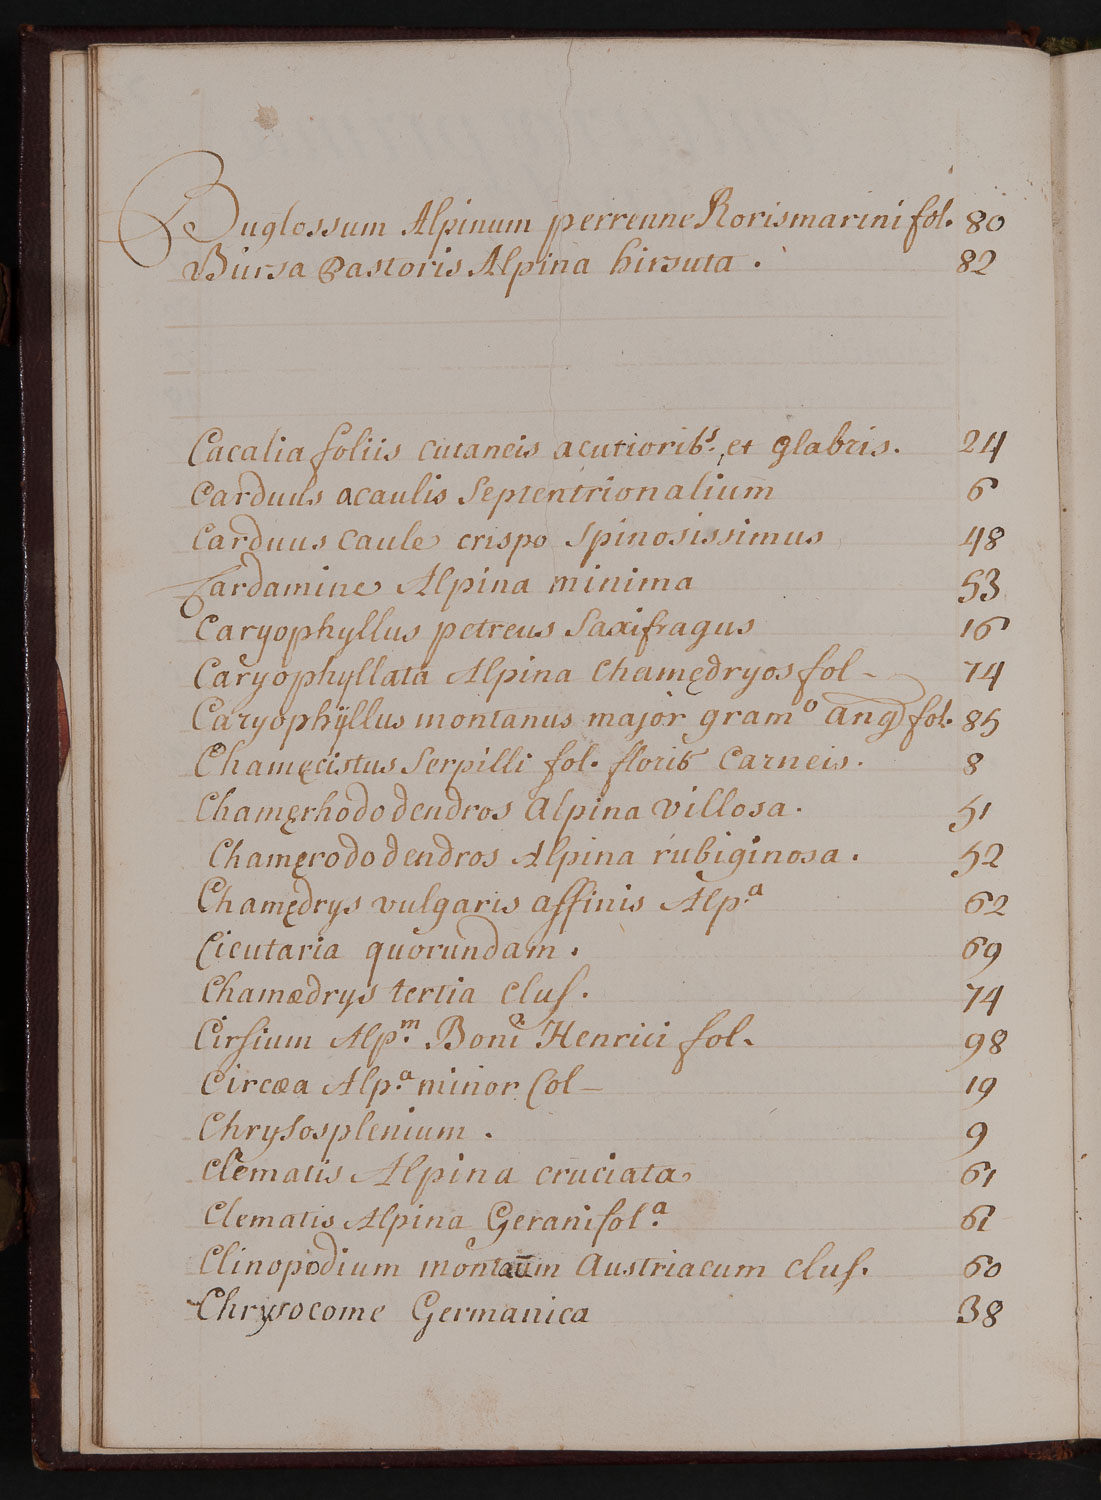 Buglossum Alpinum perrenne Rorismarini fol. 80
Bursa Pastoris Alpina hirsuta. 82
Cacalia foliis cutaneis acutioribs. et glabris. 24
Carduus acaulis Septentrionalium 6
Carduus caule crispo spinosissimus 48
Cardamine Alpina minima 53
Caryophyllus petreus Saxifragus 16
Caryophyllata Alpina Chamędryos fol - 74
Caryophÿllus montanus major gramo ang fol. 85
Chamęcistus Serpilli fol. florib Carneis. 8
Chamęrhododendros Alpina villosa. 51
Chamęrododendros Alpina rubiginosa. 52
Chamędrys vulgaris affinis Alp.a 62
Cicutaria quorundam. 69
Chamædrys tertia Cluſ. 74
Cirſium Alp.m Boni Henrici fol. 98
Circæa Alp.a minor Col - 19
Chryſosplenium. 9
Clematis Alpina cruciata 61
Clematis Alpina Geranifol.a 61
Clinopodium montaūm Austriacum cluſ. 60
Chrysocome Germanica 38